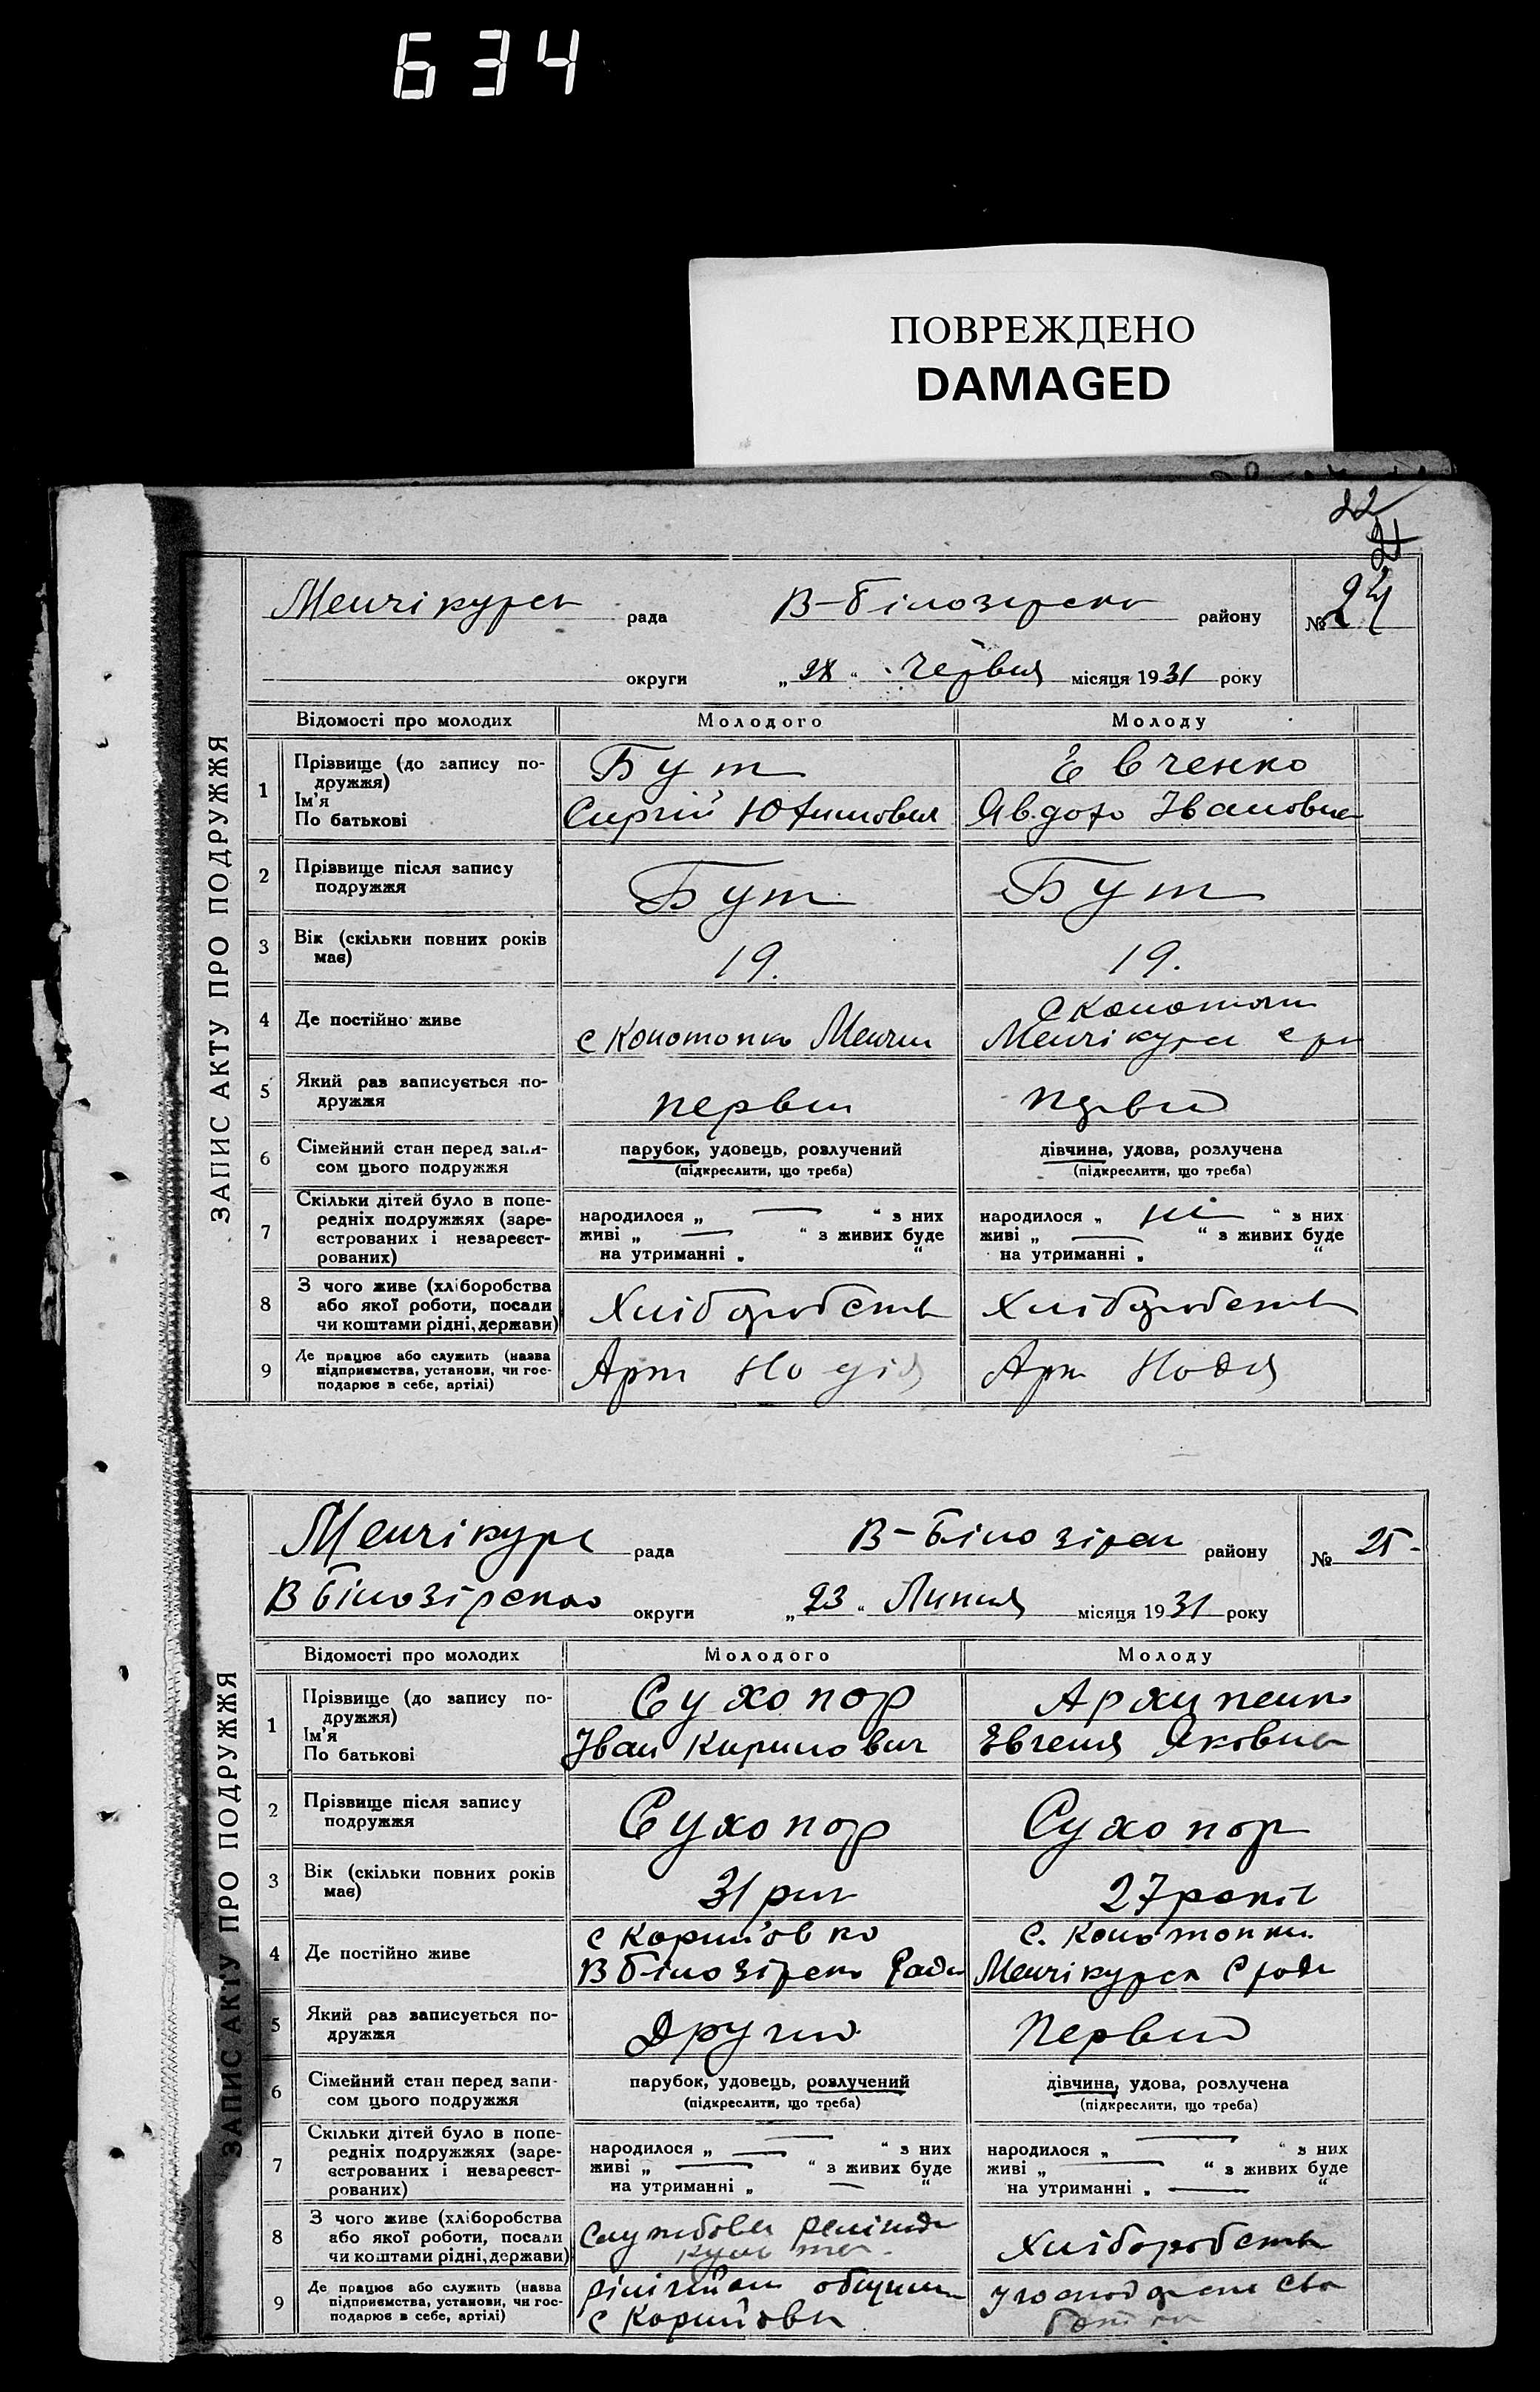 634
ПОВРЕЖДЕНО
DAMAGED
22
24
ЗАПИС АКТУ ПРО ПОДРУЖЖЯ
Менчікурск рада В-Білозірско району № 24
округи „28“ Червня місяця 1931 року
Відомості про молодих Молодого Молоду
1 Прізвище (до запису по- Бут Евченко
дружжя)
Ім'я
По батькові Сиргій Юхимович Явдохо Івановна
2 Прізвище після запису
подружжя Бут Бут
3 Вік (скільки повних років
має) 19. 19.
4 Де постійно живе с Конотопко Менчи с Конотопи
Менчікурск с ра
5 Який раз записується по-
дружжя первий первий
6 Сімейний стан перед запи- парубок, удовець, розлучений дівчина, удова, розлучена
сом цього подружжя (підкреслити, що треба) (підкреслити, що треба)
7 Скільки дітей було в попе-
редніх подружжях (заре- народилося „ — “ з них народилося „ ні “ з них
єстрованих і незареєст- живі „ — “ з живих буде живі „ — “ з живих буде
рованих) на утриманні „ “ на утриманні „ “
8 З чого живе (хліборобства
або якої роботи, посади Хліборобств Хліборобств
чи коштами рідні, держави)
9 Де працює або служить (назва
підприємства, установи, чи гос- Арт Арт
подарює в себе, артілі)
ЗАПИС АКТУ ПРО ПОДРУЖЖЯ
Менчікурс рада В-Білозірск району № 25-
В Білозірско округи „23“ Липня місяця 1931 року
Відомості про молодих Молодого Молоду
1 Прізвище (до запису по- Сухопор Архипенко
дружжя)
Ім'я Іван Кирилович Евгения Яковна
По батькові
2 Прізвище після запису
подружжя Сухопор Сухопор
3 Вік (скільки повних років
має) 31 рик 27 років
4 Де постійно живе с Корнійовко с. Конотопки
В Білозірско Ради Менчікурск С ради
5 Який раз записується по-
дружжя Другий Первий
6 Сімейний стан перед запи- парубок, удовець, розлучений дівчина, удова, розлучена
сом цього подружжя (підкреслити, що треба) (підкреслити, що треба)
7 Скільки дітей було в попе-
редніх подружжях (заре- народилося „ — “ з них народилося „ — “ з них
єстрованих і незареєст- живі „ — “ з живих буде живі „ — “ з живих буде
рованих) на утриманні „ — “ на утриманні „ — “
8 З чого живе (хліборобства
або якої роботи, посади Хліборобств
чи коштами рідні, держави) культа
9 Де працює або служить (назва
підприємства, установи, чи гос- общини
подарює в себе, артілі) с Корнійовки